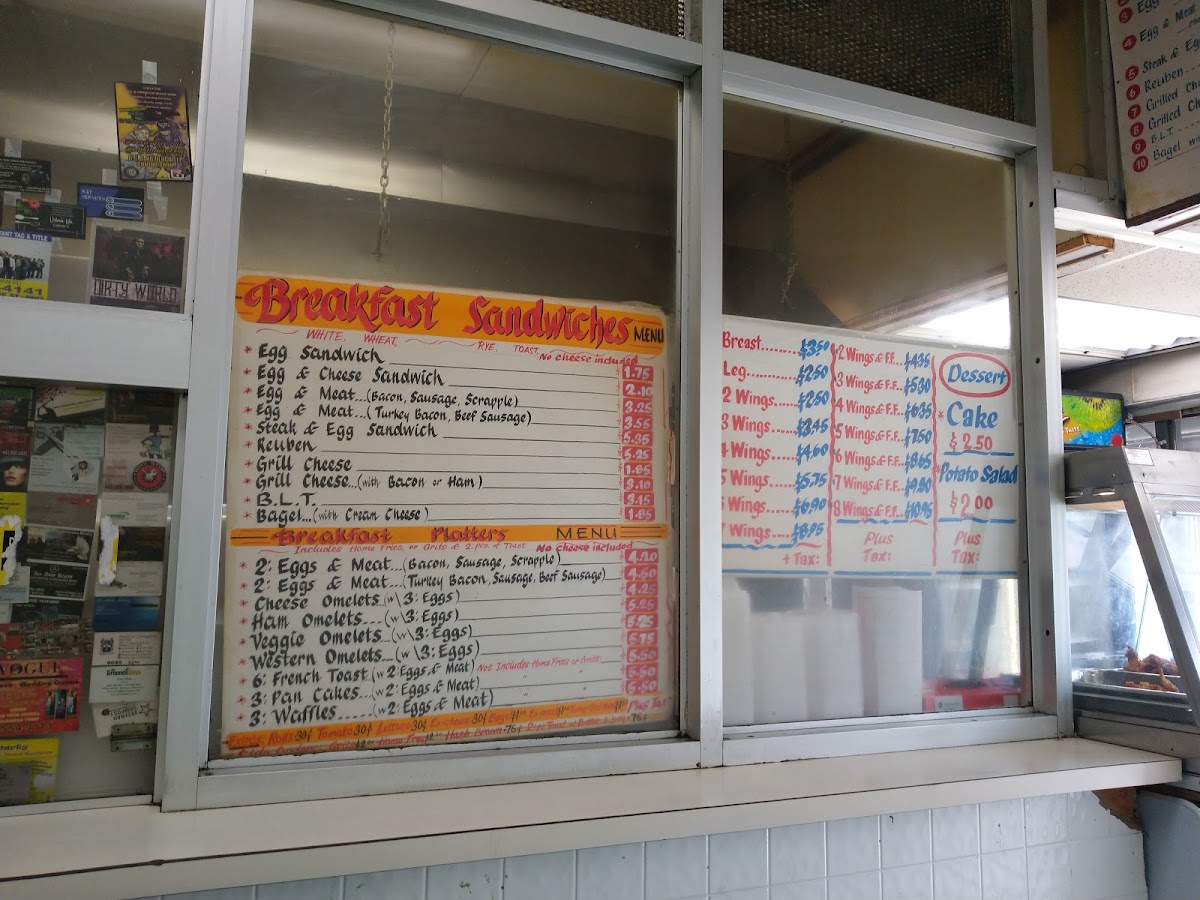 Breakfast Sandwiches MENU
WHITE, WHEAT, RYE, TOAST No cheese included
* Egg Sandwich 1.75
* Egg & Cheese Sandwich 2.10
* Egg & Meat...(Bacon, Sausage, Scrapple) 3.25
* Egg & Meat...(Turkey Bacon, Beef Sausage) 3.55
* Steak & Egg Sandwich 5.35
* Reuben 5.25
* Grill Cheese 1.85
* Grill Cheese...(with Bacon or Ham) 3.10
* B.L.T. 3.15
* Bagel...(with Cream Cheese) 1.85
Breakfast Platters MENU
Includes Home Fries, or Grits & 2 pcs of Toast No cheese included
* 2: Eggs & Meat...(Bacon, Sausage, Scrapple) 4.20
* 2: Eggs & Meat...(Turkey Bacon, Sausage, Beef Sausage) 4.50
* Cheese Omelets (w\3: Eggs) 4.25
* Ham Omelets...(w\3: Eggs) 5.25
* Veggie Omelets...(w\3: Eggs) 5.25
* Western Omelets...(w\3: Eggs) 5.75
* 6: French Toast (w 2: Eggs & Meat) Not Includes Home Fries or Grits 5.50
* 3: Pan Cakes...(w 2: Eggs & Meat) 5.50
* 3: Waffles.....(w 2: Eggs & Meat) 5.50
Plus Tax
Extras: Rolls 30¢ Tomato 30¢ Lettuce 30¢
Hash Brown 75¢
Breast......... $3.50
Leg.......... $2.50
2 Wings..... $2.50
3 Wings..... $3.45
4 Wings..... $4.60
5 Wings..... $5.75
6 Wings..... $6.90
7 Wings..... $8.05
+ Tax:
2 Wings & F.F... $4.35
3 Wings & F.F... $5.30
4 Wings & F.F... $6.35
5 Wings & F.F... $7.50
6 Wings & F.F... $8.65
7 Wings & F.F... $9.80
8 Wings & F.F... $10.95
Plus
Tax:
Dessert
* Cake
$2.50
Potato Salad
$2.00
Plus
Tax:
3 Egg
4 Egg & Meat
5 Steak & Eg
6 Reuben
7 Grilled Che
8 Grilled Ch
9 B.L.T.
10 Bagel wi
TAG & TITLE
4141
DIRTY WORLD
VOGUE